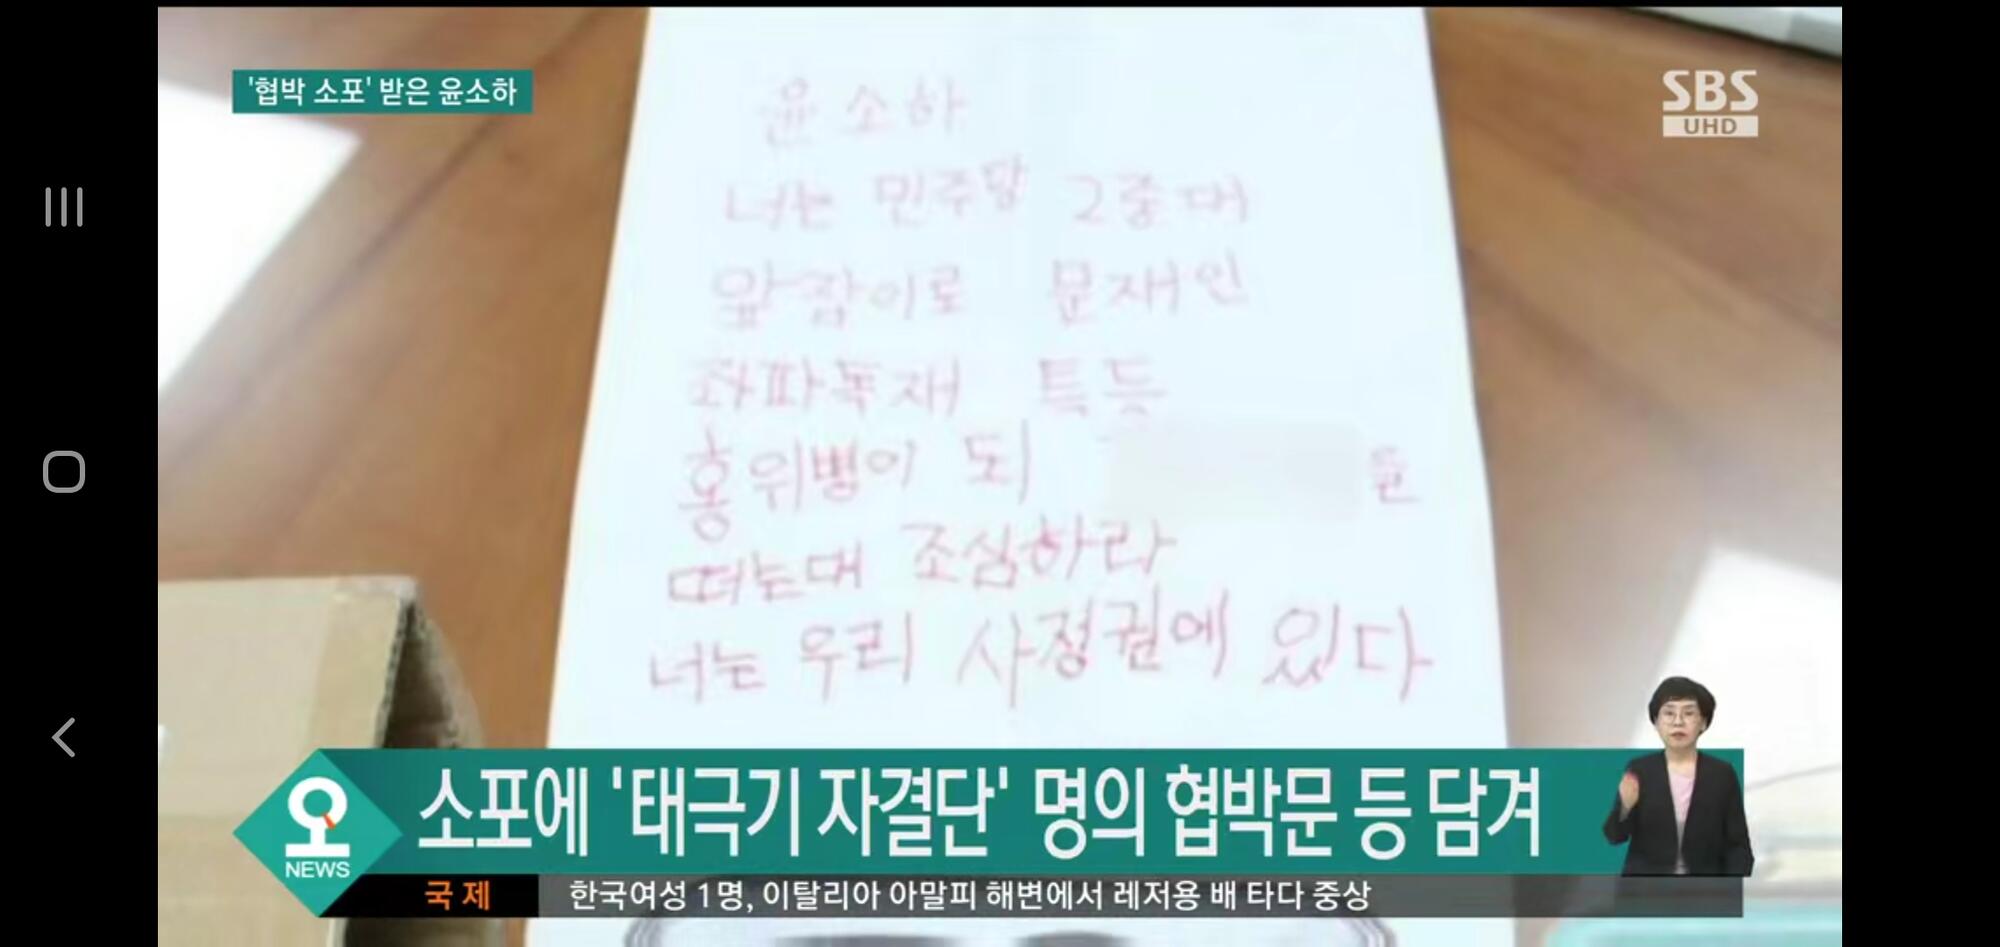 '협박 소포' 받은 윤소하
SBS
UHD
윤소하
너는 민주당 2중대
앞잡이로 문재인
좌파독재 특등
홍위병이 되
떠는대 조심하라
너는 우리 사정권에 있다
소포에 '태극기 자결단' 명의 협박문 등 담겨
오
NEWS
국제
한국여성 1명, 이탈리아 아말피 해변에서 레저용 배 타다 중상